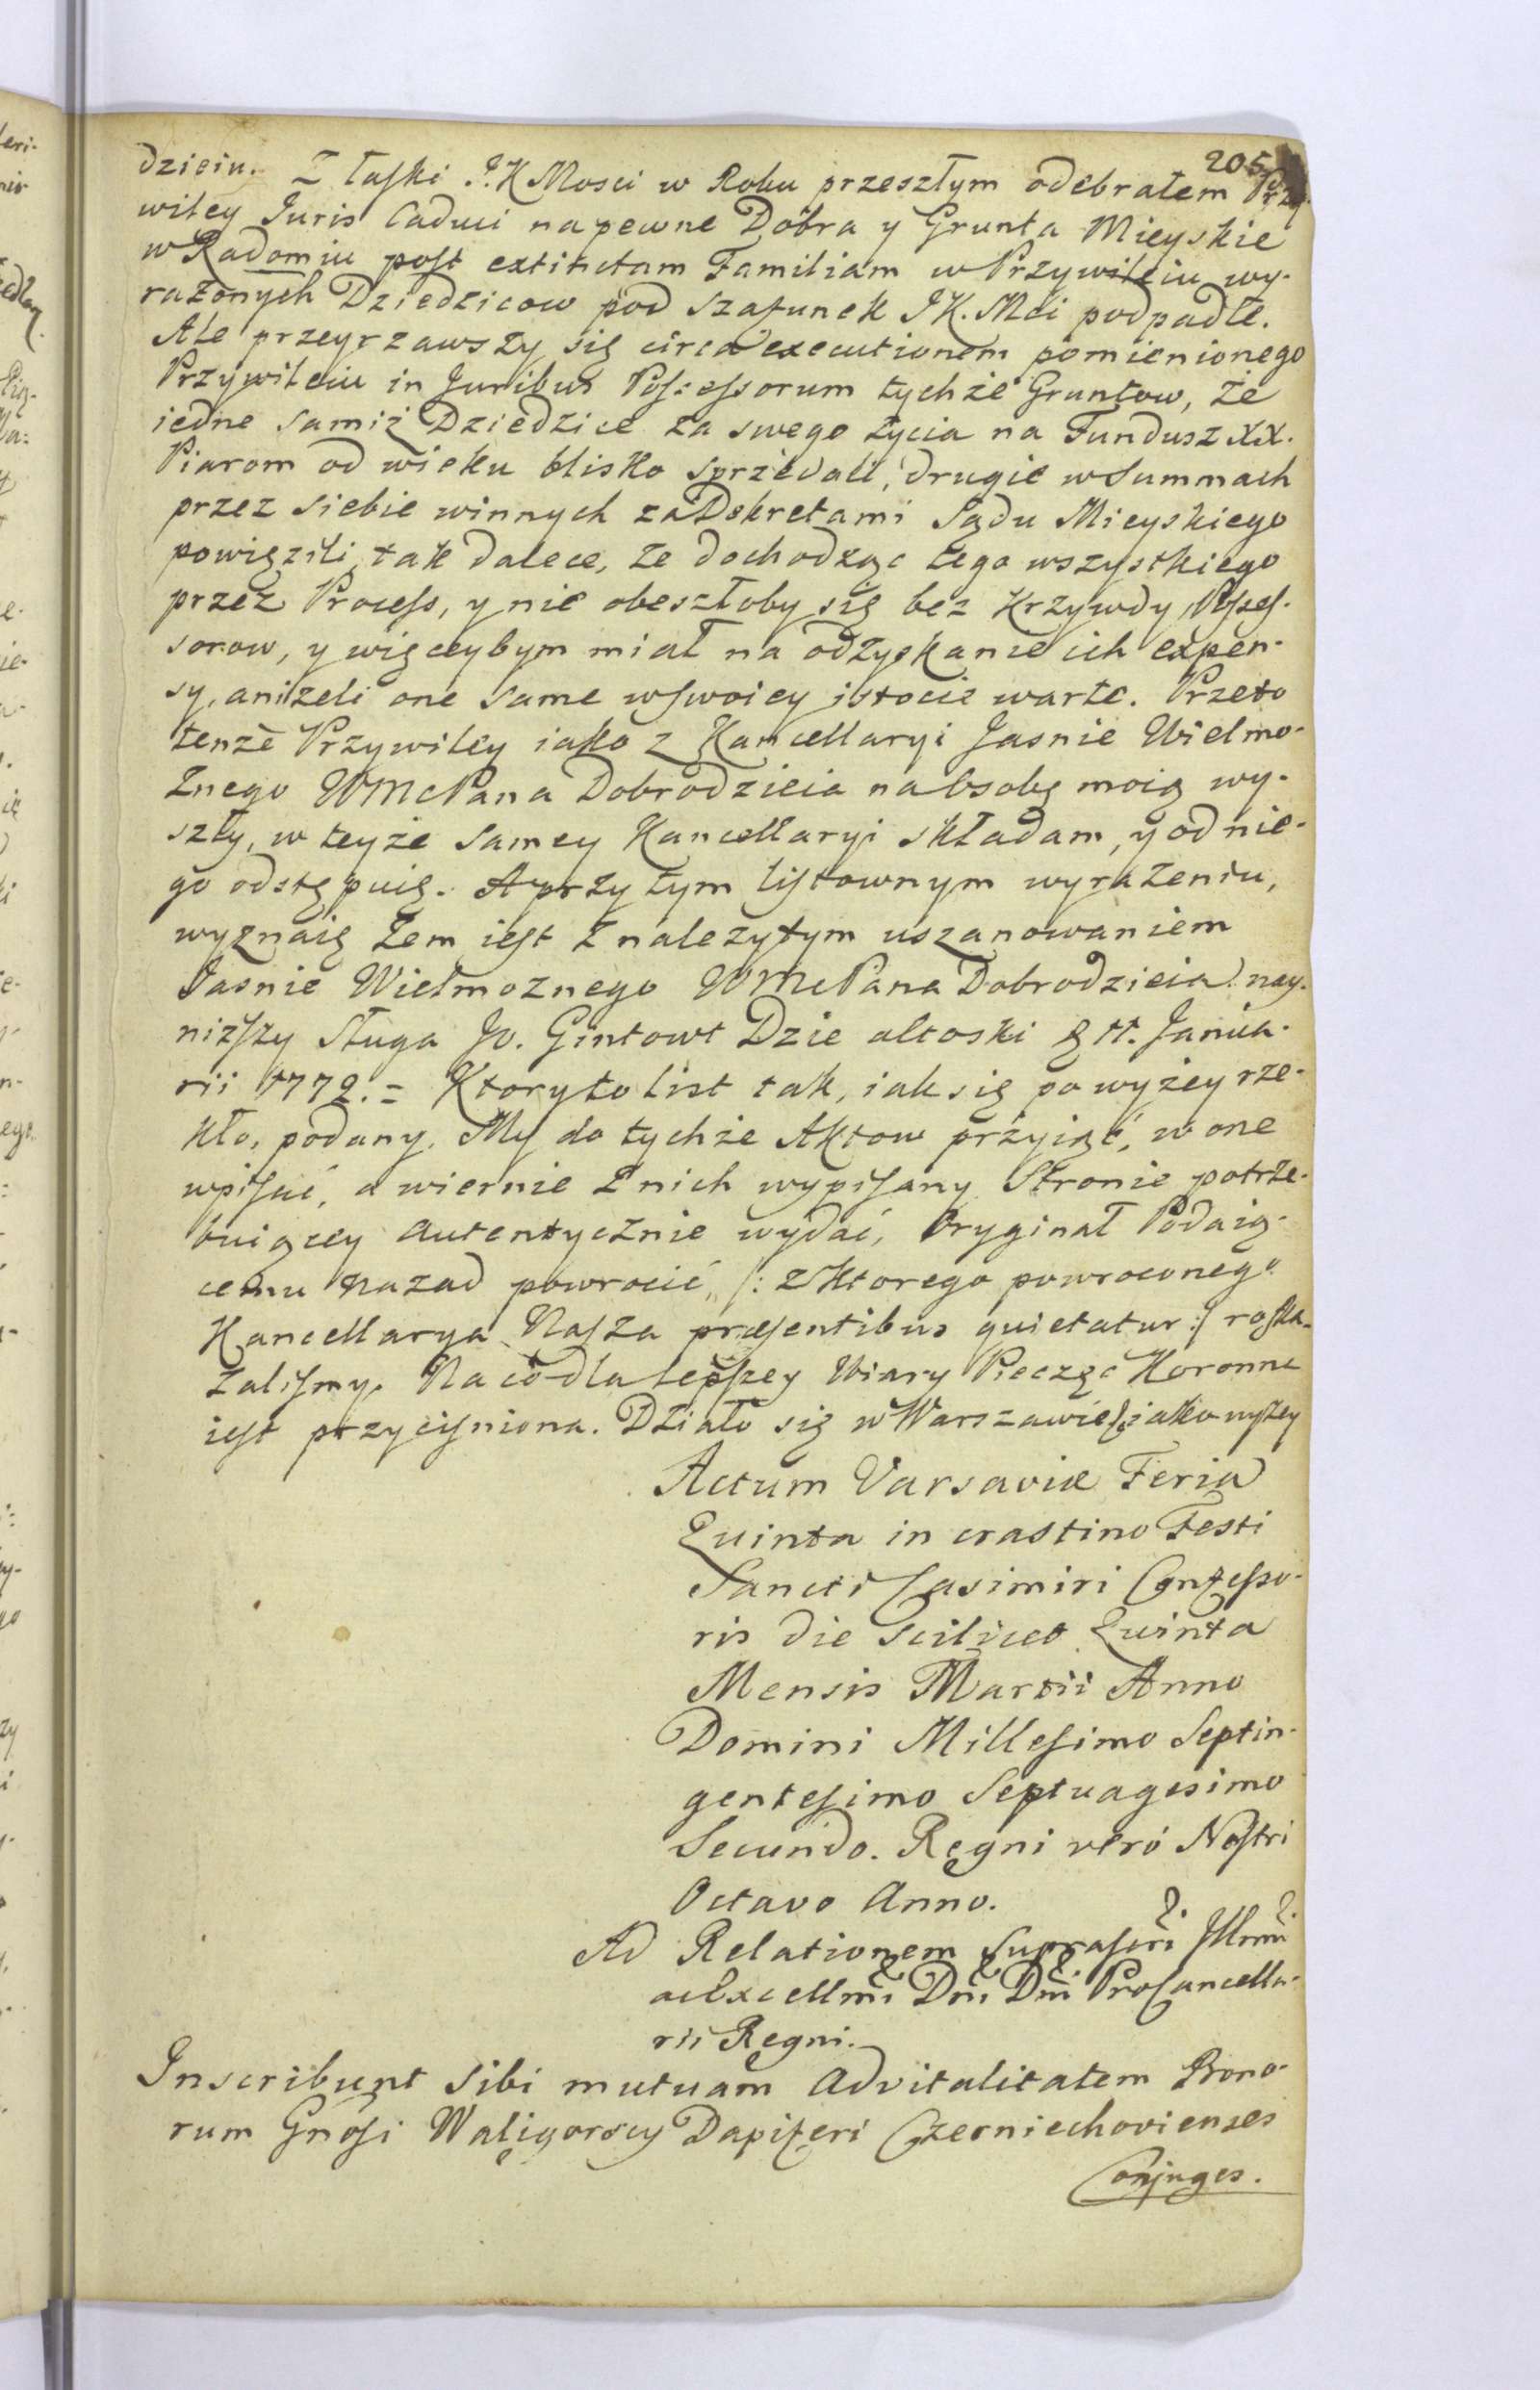 205
dzieiu. Z łaski J. K Mosci w Roku przeszłym odebrałem Przy-
wiley Juris Caduci na pewne Dobra y Grunta Mieyskie
w Radomiu post extinctam Familiam w Przywileiu wy-
rażonych Dziedzicow pod szafunek JK. Mci podpadłe.
Ale przeyrzawszy się circa executionem pomienionego
Przywileiu in Juribus Possessorum tychże Gruntow, że
iedne sami Dziedzice za swego życia na Fundusz XX.
Piarom od wieku blisko sprzedali, drugie w Summach
przez siebie winnych za Dekretami Sądu Mieyskiego
powięzili, tak dalece, że dochodząc tego wszystkiego
przez Process, y nie obeszłoby się bez Krzywdy Posses-
sorow, y więceybym miał na odzyskanie ich expen-
sy, aniżeli one same w swoiey istocie warte. Przeto
tenże Przywiley iako z Kancellaryi Jasnie Wielmo-
żnego WMcPana Dobrodzieia na Osobę moię wy-
szły, w teyże samey Kancellaryi składam, y od nie-
go odstępuię. A przy tym listownym wyrażeniu,
wyznaię żem iest z należytym uszanowaniem
Jasnie Wielmoznego WMcPana Dobrodzieia nay-
niższy sługa Jo. Gintowt Dzie ałtoski 11. Janua-
rii 1772. = Ktoryto list tak, iak się powyżey rze-
kło, podany. My do tychże Aktow przyiąć, w one
wpisać, a wiernie z nich wypisany Stronie potrze-
buiącey autentycznie wydać, Oryginał Podaią-
cemu nazad powrocić, /: z ktorego powroconego
Kancellarya Nasza præsentibus quietatur :/ roska-
zalismy. Na co dla lepszey Wiary Pieczęc Koronna
iest przycisniona. Działo się w Warszawie jako wyżey
Actum Varsaviæ Feria
Quinta in crastino Festi
Sancti Casimiri Confesso-
ris die scilicet Quinta
Mensis Martii Anno
Domini Millesimo Septin-
gentesimo Septuagesimo
Secundo. Regni veró Nostri
Octavo Anno.
Ad Relationem Suprascri Illmi
ac Excellmi Dni Dni ProCancella-
rii Regni.
Inscribunt sibi mutuam Advitalitatem Bono-
rum Gnosi Waligorscy Dapiferi Czerniechovienses
Conjuges.